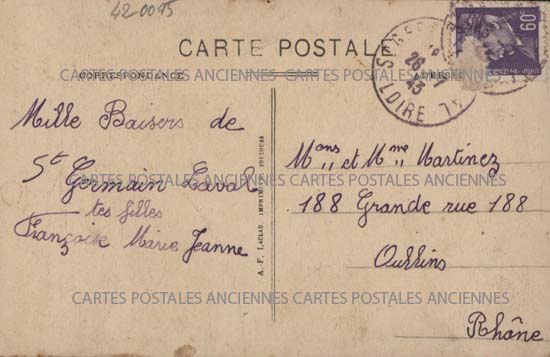 42-0095
60c
CARTE POSTALE
CORRESPONDANCE
ADRESSE
26
43
LOIRE
CARTES POSTALES ANCIENNES CARTES POSTALES ANCIENNES
Mille Baisers de
St Germain Laval
tes filles
Françoise Marie Jeanne
A. F. LACLAU IMPRIM. TOULOUSE
Mons et Mme Martinez
188 Grande rue 188
Oullins
Rhône
CARTES POSTALES ANCIENNES CARTES POSTALES ANCIENNES
CARTES POSTALES ANCIENNES CARTES POSTALES ANCIENNES